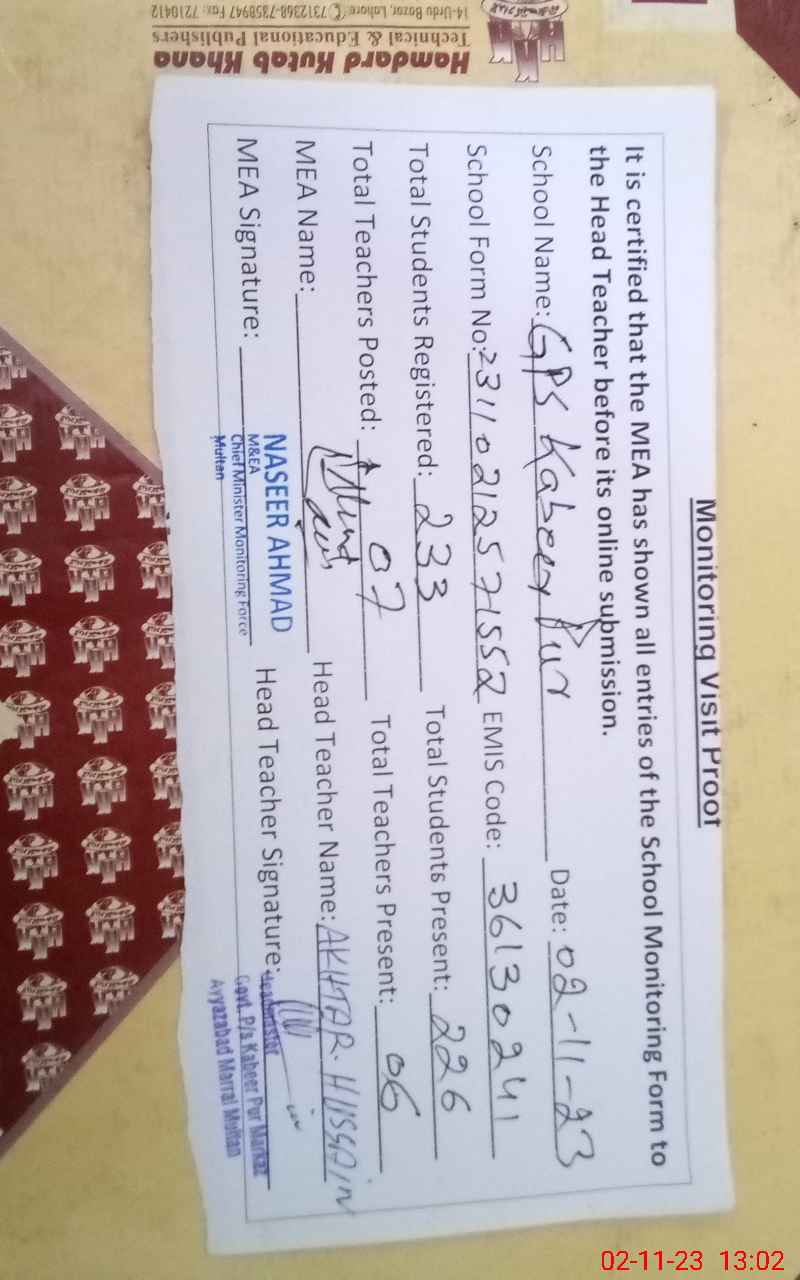 Monitoring Visit Proof
It is certified that the MEA has shown all entries of the School Monitoring Form to
the Head Teacher before its online submission.
School Name: GPS Kabeer Pur Date: 02-11-23
School Form No: 23110212571552 EMIS Code: 36130241
Total Students Registered: 233 Total Students Present: 226
Total Teachers Posted: 07 Total Teachers Present: 06
MEA Name: Head Teacher Name: AKHTAR. HUSSAIN
MEA Signature: Head Teacher Signature:
NASEER AHMAD
M&EA
Chief Minister Monitoring Force
Multan
Headmaster
Govt. P/s Kabeer Pur Markaz
Ayyazabad Marral Multan
Hamdard Kutab Khana
Technical & Educational Publishers
14-Urdu Bazar, Lahore 7312368-7358947 Fax: 7210412
02-11-23 13:02